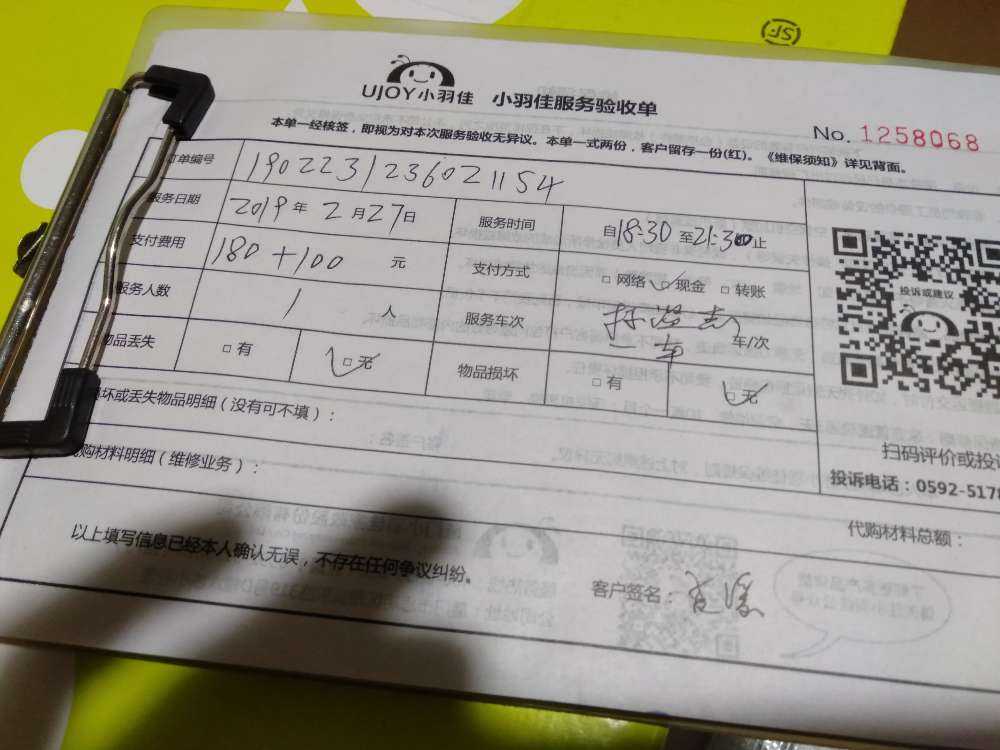 UJOY小羽佳 小羽佳服务验收单
No. 1258068
本单一经核签，即视为对本次服务验收无异议。本单一式两份，客户留存一份(红)。《维保须知》详见背面。
订单编号 1902231236021154
服务日期 2019年2月27日 服务时间 自18:30至21:30止
支付费用 180+100 元 支付方式 □网络 □现金 □转账
服务人数 1 人 服务车次 车/次
物品丢失 □有 □无 物品损坏 □有 □无
投诉或建议
损坏或丢失物品明细（没有可不填）：
扫码评价或投诉
代购材料明细（维修业务）：
投诉电话：0592-5178
代购材料总额：
以上填写信息已经本人确认无误，不存在任何争议纠纷。
客户签名：